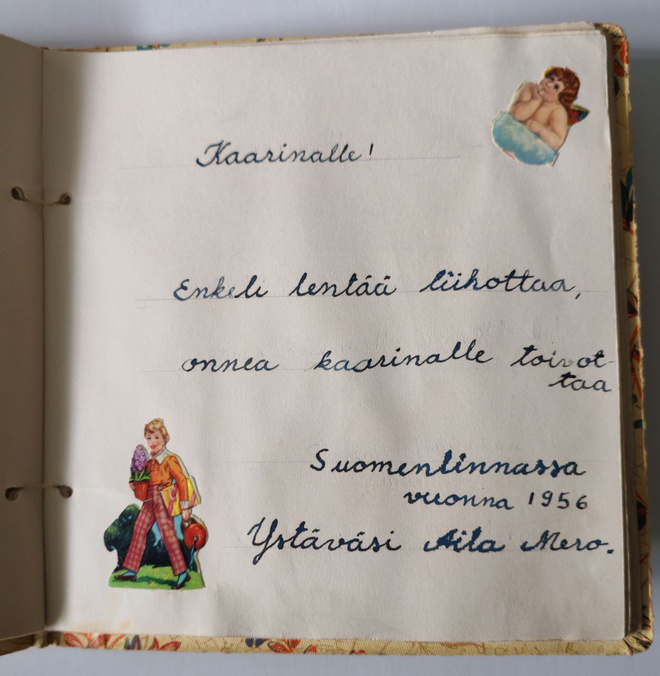 Kaarinalle!
Enkeli lentää liihottaa,
onnea kaarinalle toivot-
taa
Suomenlinnassa
vuonna 1956
Ystäväsi Aila Mero.